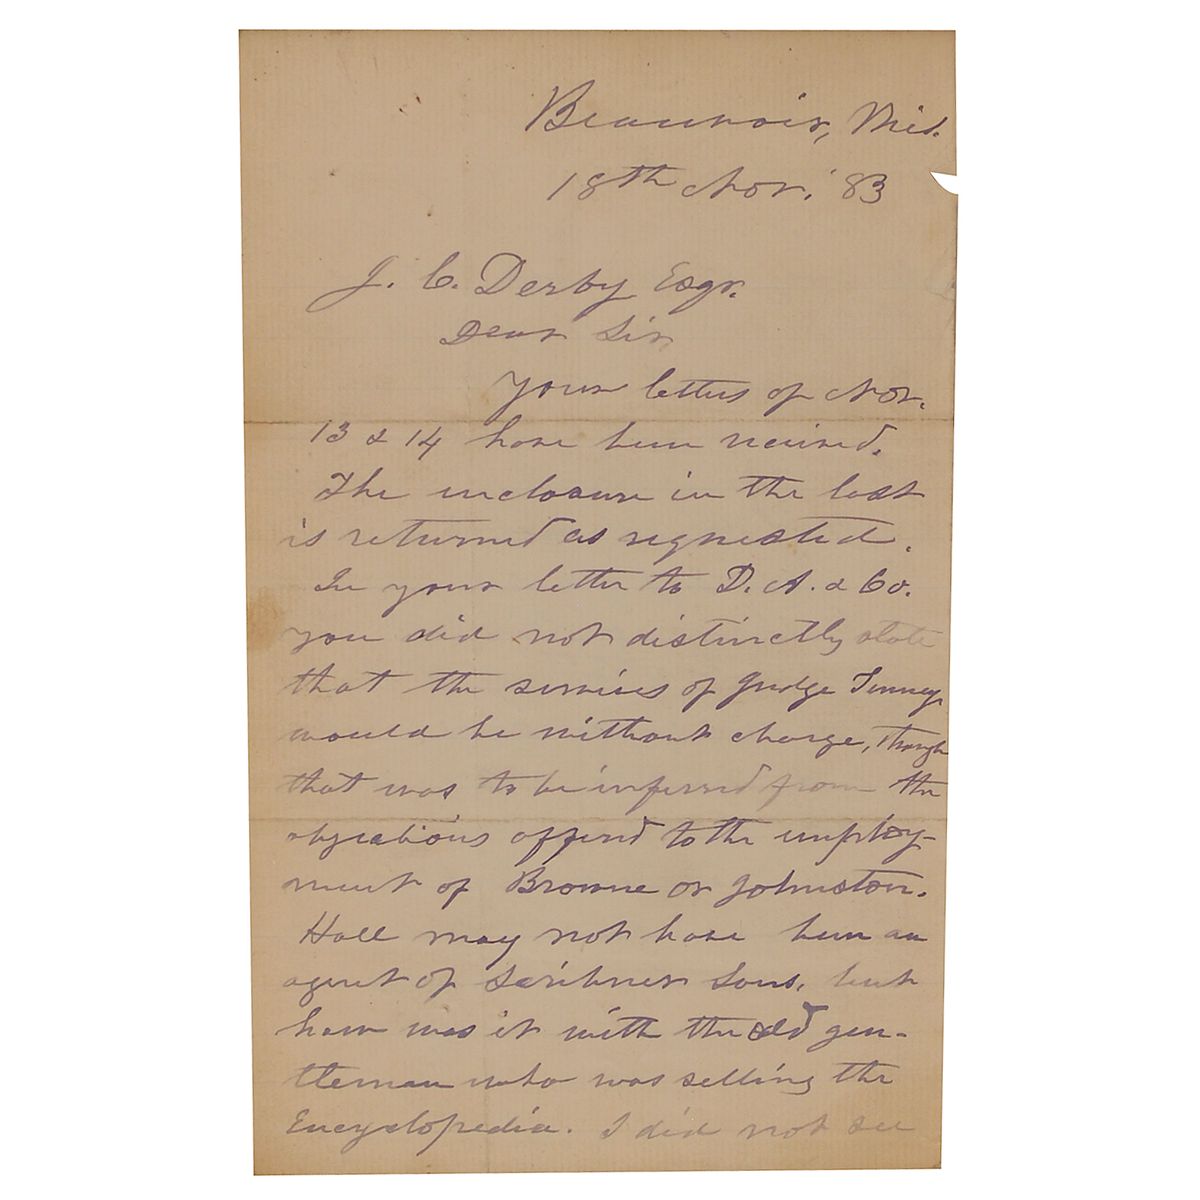 Beauvoir, Mis.
18th Nov. '83
J. C. Derby Esqr.
Dear Sir
Your letters of Nov.
13 & 14 have been received.
The inclosure in the last
is returned as requested.
In your letter to D. A. & Co.
you did not distinctly state
that the services of Judge Tenney
would be without charge, though
that was to be inferred from the
objections offered to the employ-
ment of Browne or Johnston.
Hall may not have been an
agent of Scribner Sons, but
how was it with the old gen-
tleman who was selling the
Encyclopedia. I did not see